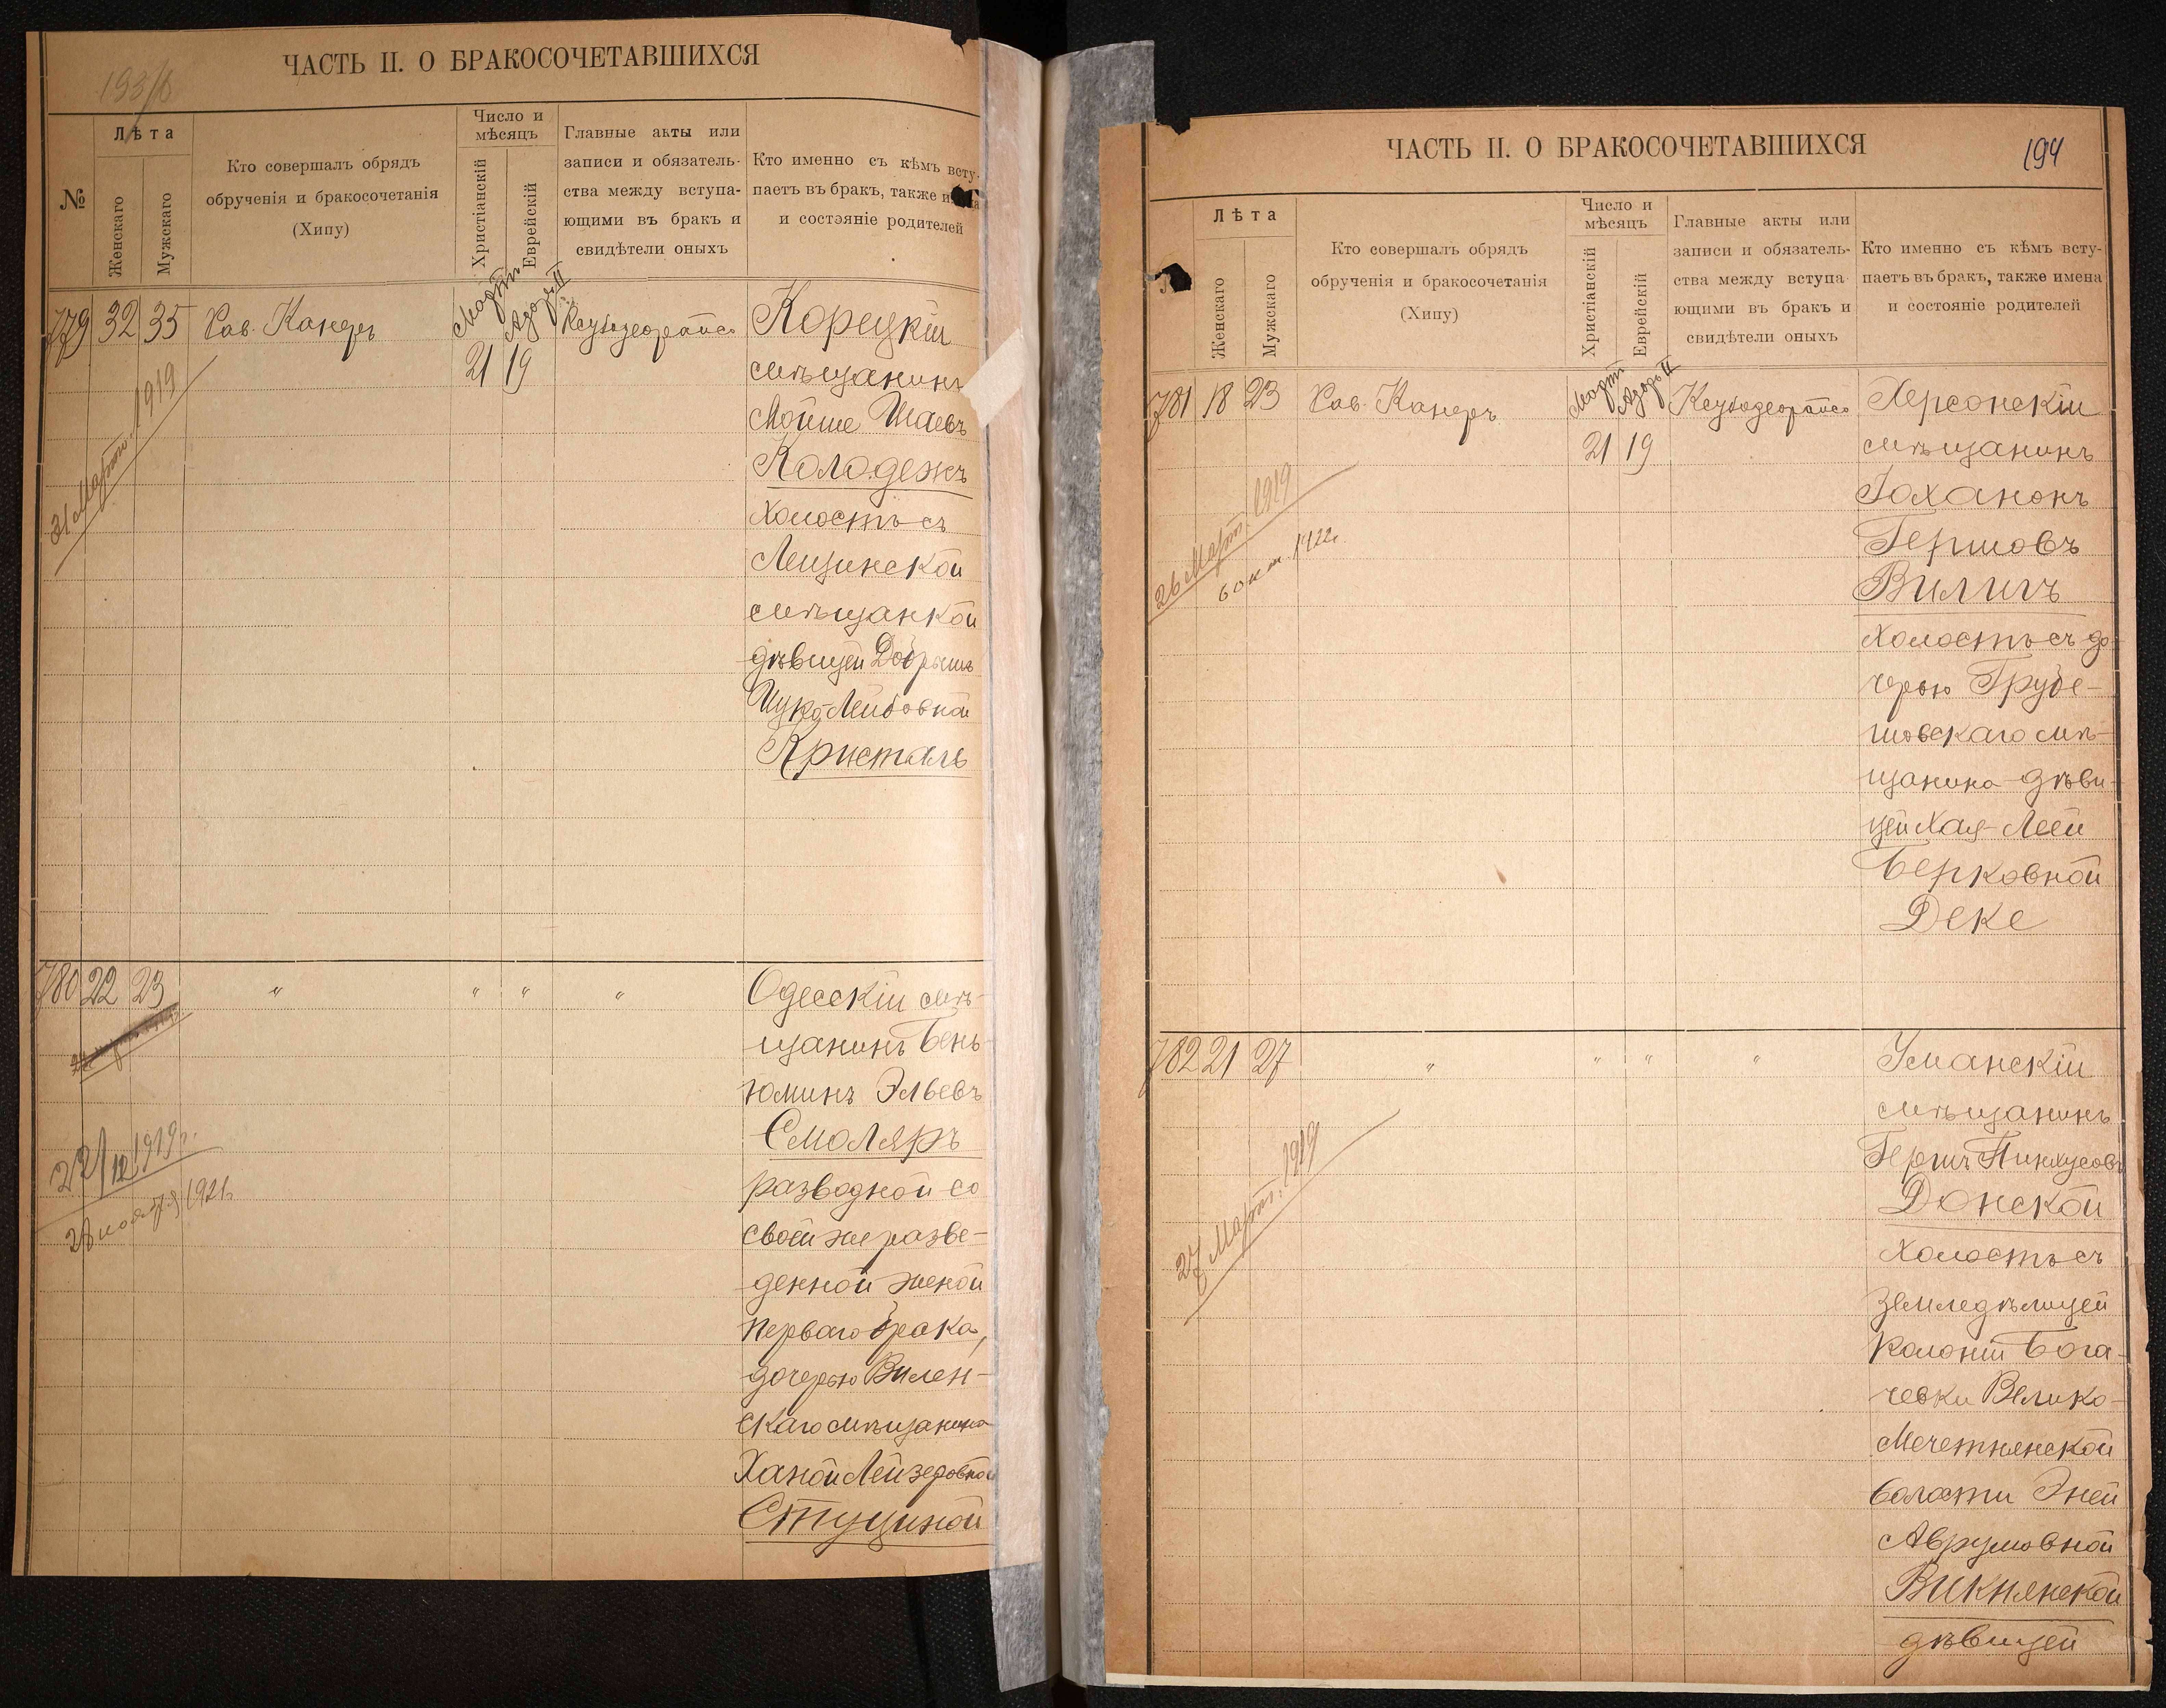 193/б
ЧАСТЬ II. О БРАКОСОЧЕТАВШИХСЯ
№
Лѣта
Женскаго
Мужскаго
Кто совершалъ обрядъ
обрученія и бракосочетанія
(Хипу)
Число и
мѣсяцъ
Христіанскій
Еврейскій
Главные акты или
записи и обязатель-
ства между вступа-
ющими въ бракъ и
свидѣтели оныхъ
Кто именно съ кѣмъ всту-
паетъ въ бракъ, также
и состэяніе родителей
779 32 35 Рав. Канеръ
Мартъ Адоръ II
21 19
31 Март. 1919
Корецкій
мѣщанинъ
Мойше Шаевъ
Колодежъ
холостъ съ
Лещинской
мѣщанкой
дѣвицей Добрышъ
Цукъ Лейбовной
Кристаль
780 22 23 " " " "
22/12 1919 г.
28 ноября 1921
Одесскій мѣ-
щанинъ Бень-
юминъ Эльевъ
Смоляръ
разводной со
своей же разве-
денной женой
перваго брака,
дочерью Вилен-
скаго мѣщанина
Ханой Лейзеровной
Стуциной
194
ЧАСТЬ II. О БРАКОСОЧЕТАВШИХСЯ
Лѣта
Женскаго
Мужскаго
Кто совершалъ обрядъ
обрученія и бракосочетанія
(Хипу)
Число и
мѣсяцъ
Христіанскій
Еврейскій
Главные акты или
записи и обязатель-
ства между вступа-
ющими въ бракъ и
свидѣтели оныхъ
Кто именно съ кѣмъ всту-
паетъ въ бракъ, также имена
и состояніе родителей
781 18 23 Рав. Канеръ
Мартъ Адоръ II
21 19
26 Март. 1919
6 окт. 1922
Херсонскій
мѣщанинъ
Іохананъ
Гершовъ
Виличъ
холостъ съ до-
черью Грубе-
шовскаго мѣ-
щанина дѣви-
цей Хая-Леей
Берковной
Деке
782 21 27 " " " "
27 Март. 1919
Уманскій
мѣщанинъ
Гершъ Пинхусовъ
Донской
холостъ съ
земледѣлицей
колоніи Бога-
чевки Велико-
Мечетнянской
волости Эней
Аврумовной
Викнянской
дѣвицей